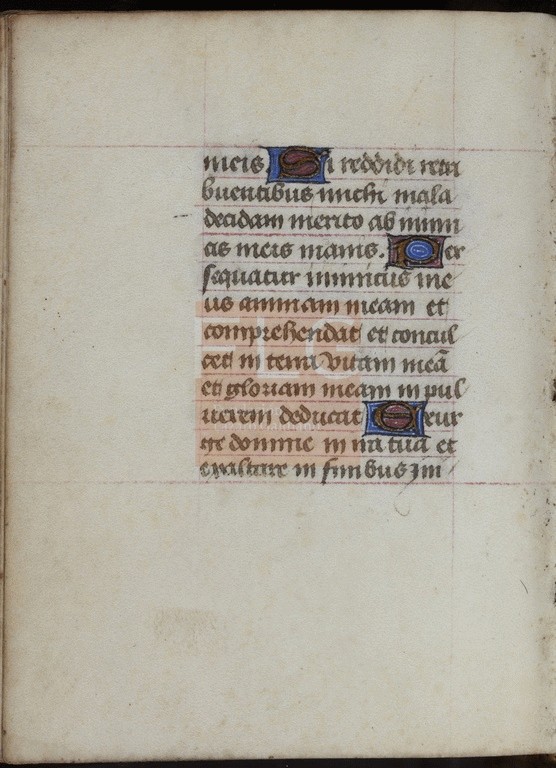 meis Si reddidi retri
buentibus michi mala
decidam merito ab inimi
cis meis inanis. Per
sequatur inimicus me
us animam meam et
comprehendat et concul
cet in terra vitam meā
et gloriam meam in pul
verem deducat Exur
ge domine in ira tua et
exaltare in finibus ini